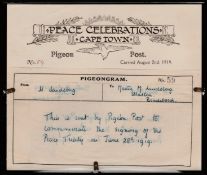 PEACE CELEBRATIONS
CAPE TOWN
Pigeon Post.
No. 59 Carried August 2nd, 1919.
PIGEONGRAM. No. 59
From To
This is sent by Pigeon Post to
commemorate the signing of the
Peace Treaty on June 28th 1919.